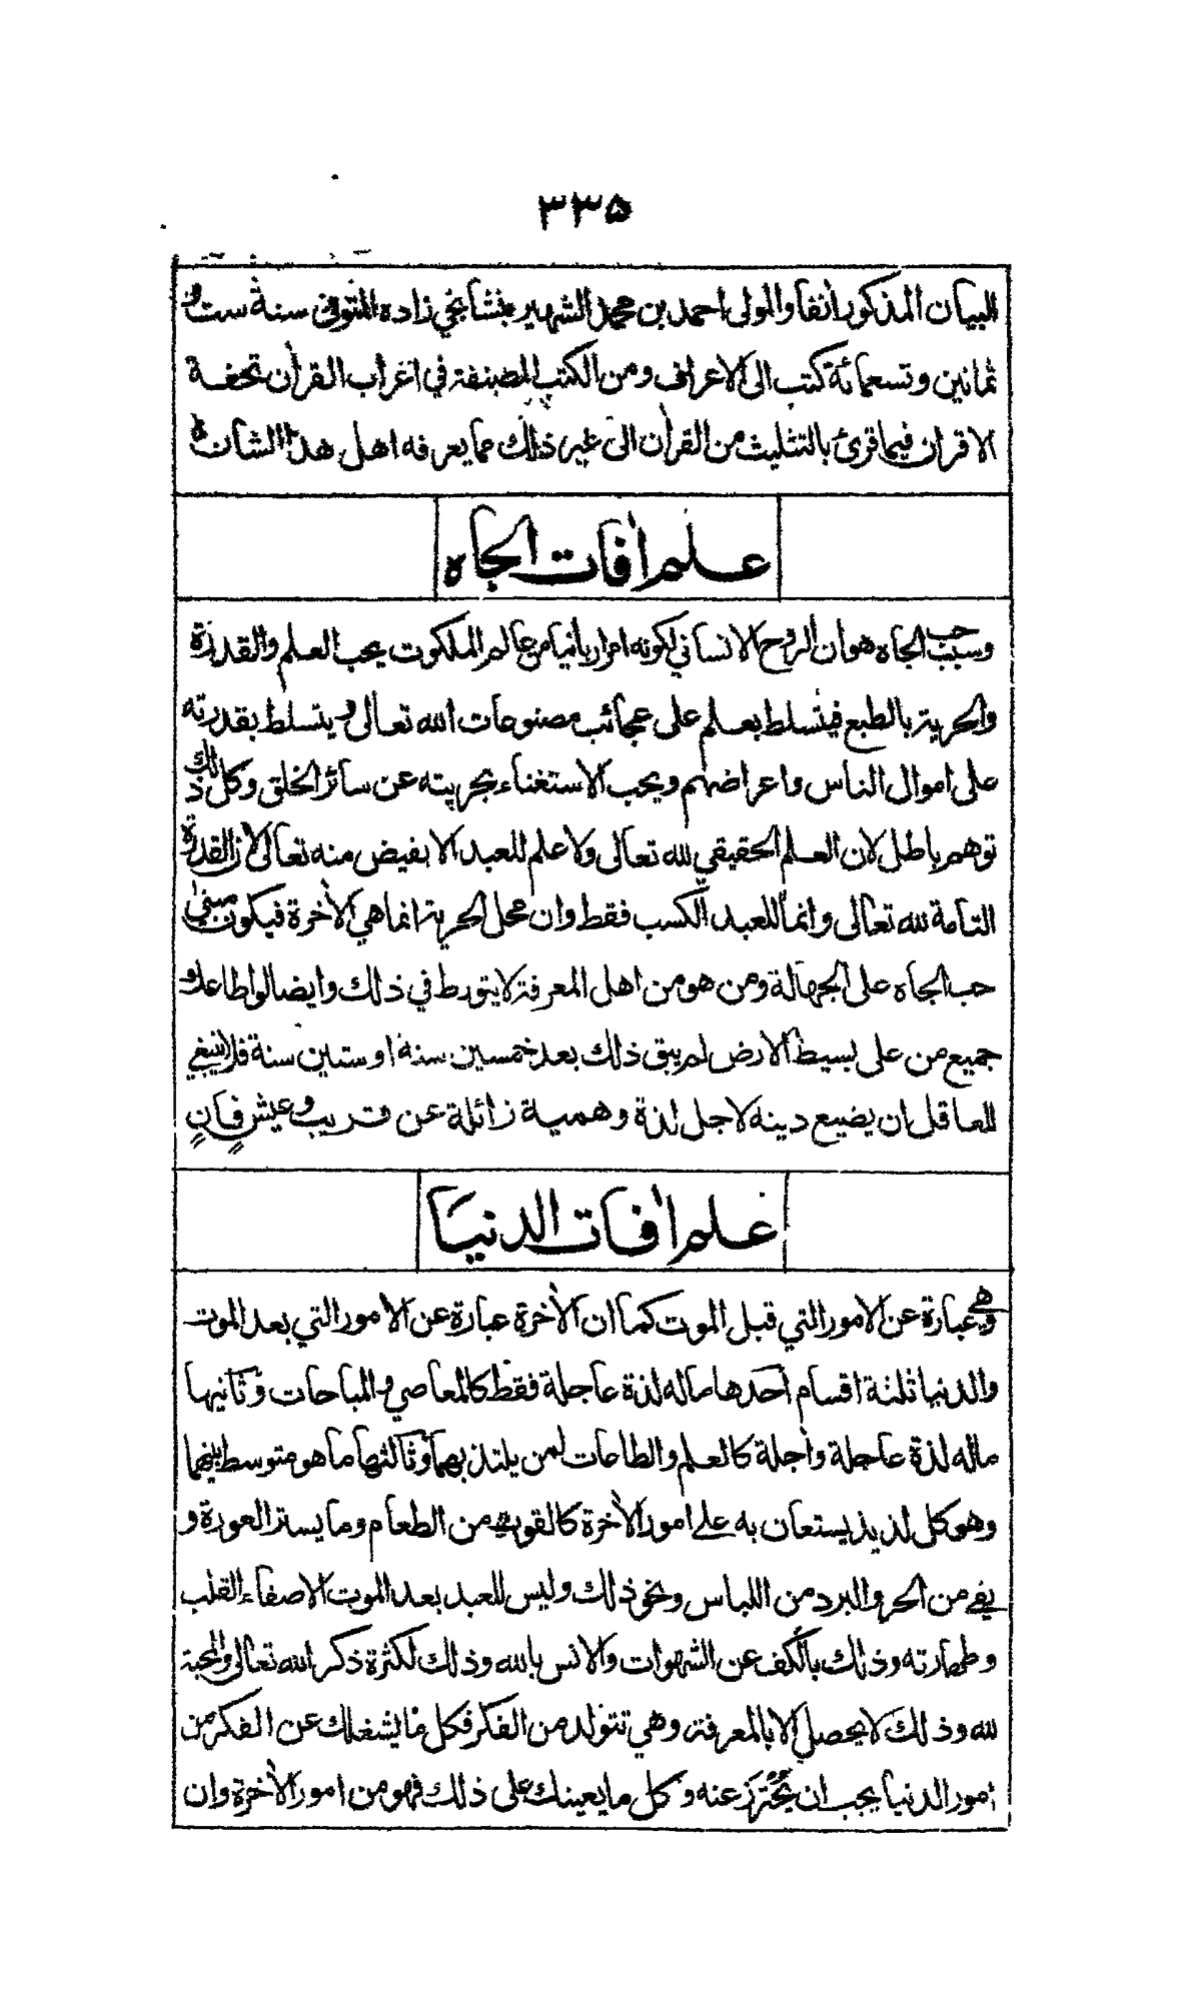 ٣٣۵
البيان المذكور انفا والمولى احمد بن محمد الشهير بنشانجي زاده المتوفى سنة ست و
ثمانين وتسعمائة كتب الى الاعراف ومن الكتب المصنفة في اغراب القران تحفة
الاقران فيما قرئ بالتثليث من القران الى غير ذلك مما يعرفه اهل هذا الشان
علم افات الجاه
وسبب حب الجاه هو ان الروح الانساني لكونه امرا ربانيا من عالم الملكوت يحب العلم والقدرة
والحرية بالطبع فيتسلط بعلم على عجائب مصنوعات الله تعالى ويتسلط بقدرته
على اموال الناس واعراضهم ويحب الاستغناء بحريته عن سائر الخلق وكل ذلك
توهم باطل لان العلم الحقيقي لله تعالى ولا علم للعبد الا بفيض منه تعالى لان القدرة
التامة لله تعالى وانما للعبد الكسب فقط وان محل الحرية انما هي الاخرة فيكون مبنى
حب الجاه على الجهالة ومن هو من اهل المعرفة لا يتورط في ذلك وايضا لو اطاعك
جميع من على بسيط الارض لم يبق ذلك بعد خمسين سنة او ستين سنة فلا ينبغي
للعاقل ان يضيع دينه لاجل لذة وهمية زائلة عن قريب وعيش فانٍ
علم افات الدنيا
وهي عبارة عن الامور التي قبل الموت كما ان الاخرة عبارة عن الامور التي بعد الموت
والدنيا ثلثة اقسام احدها ماله لذة عاجلة فقط كالمعاصي والمباحات وثانيها
ماله لذة عاجلة واجلة كالعلم والطاعات لمن يلتذ بهما وثالثها ما هو متوسط بينهما
وهو كل لذيذ يستعان به على امور الاخرة كالقوت من الطعام وما يستر العورة و
يقي من الحر والبرد من اللباس ونحو ذلك وليس للعبد بعد الموت الا صفاء القلب
وطهارته وذلك بالكف عن الشهوات والانس بالله وذلك لكثرة ذكر الله تعالى والمحبة
لله وذلك لا يحصل الا بالمعرفة وهي تتولد من الفكر فكل ما يشغلك عن الفكر من
امور الدنيا يجب ان يُحْتَرَز عنه وكل ما يعينك على ذلك فهو من امور الاخرة وان